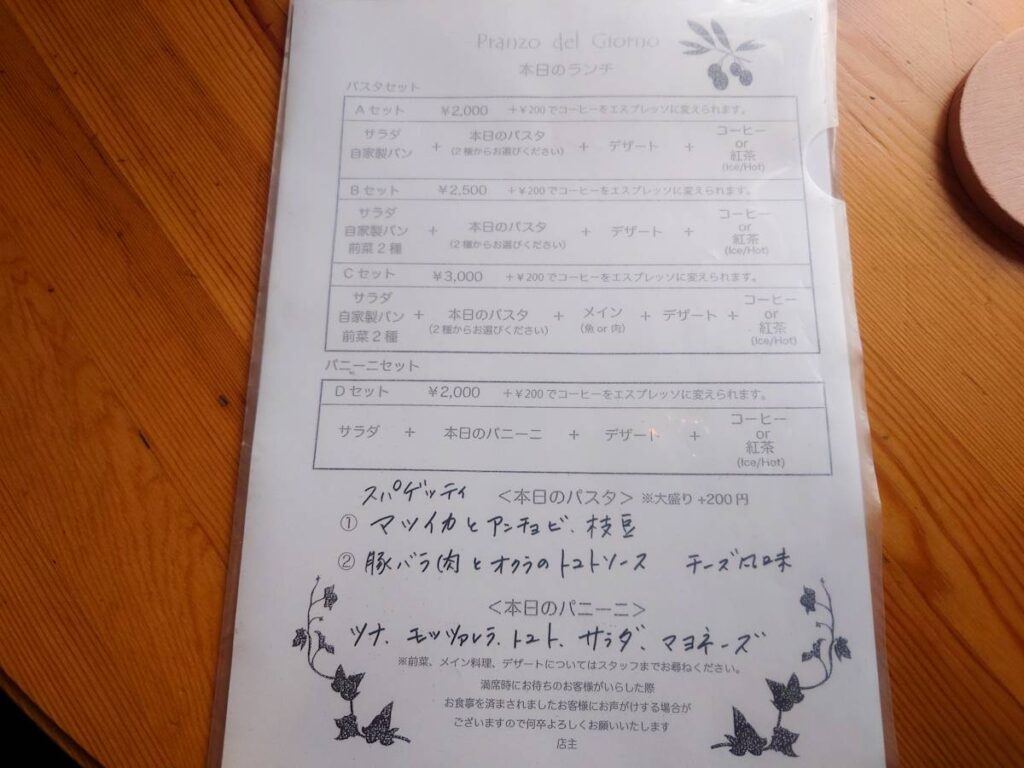 Pranzo del Giorno
本日のランチ
パスタセット
Aセット ¥2,000 +¥200でコーヒーをエスプレッソに変えられます。
サラダ 自家製パン + 本日のパスタ (2種からお選びください) + デザート + コーヒー or 紅茶 (Ice/Hot)
Bセット ¥2,500 +¥200でコーヒーをエスプレッソに変えられます。
サラダ 自家製パン 前菜2種 + 本日のパスタ (2種からお選びください) + デザート + コーヒー or 紅茶 (Ice/Hot)
Cセット ¥3,000 +¥200でコーヒーをエスプレッソに変えられます。
サラダ 自家製パン 前菜2種 + 本日のパスタ (2種からお選びください) + メイン (魚 or 肉) + デザート + コーヒー or 紅茶 (Ice/Hot)
パニーニセット
Dセット ¥2,000 +¥200でコーヒーをエスプレッソに変えられます。
サラダ + 本日のパニーニ + デザート + コーヒー or 紅茶 (Ice/Hot)
スパゲッティ <本日のパスタ> ※大盛り+200円
① マツイカとアンチョビ、枝豆
② 豚バラ肉とオクラのトマトソース チーズ風味
<本日のパニーニ>
ツナ、モッツァレラ、トマト、サラダ、マヨネーズ
※前菜、メイン料理、デザートについてはスタッフまでお尋ねください。
満席時にお待ちのお客様がいらした際
お食事を済まされましたお客様にお声がけする場合が
ございますので何卒よろしくお願いいたします
店主